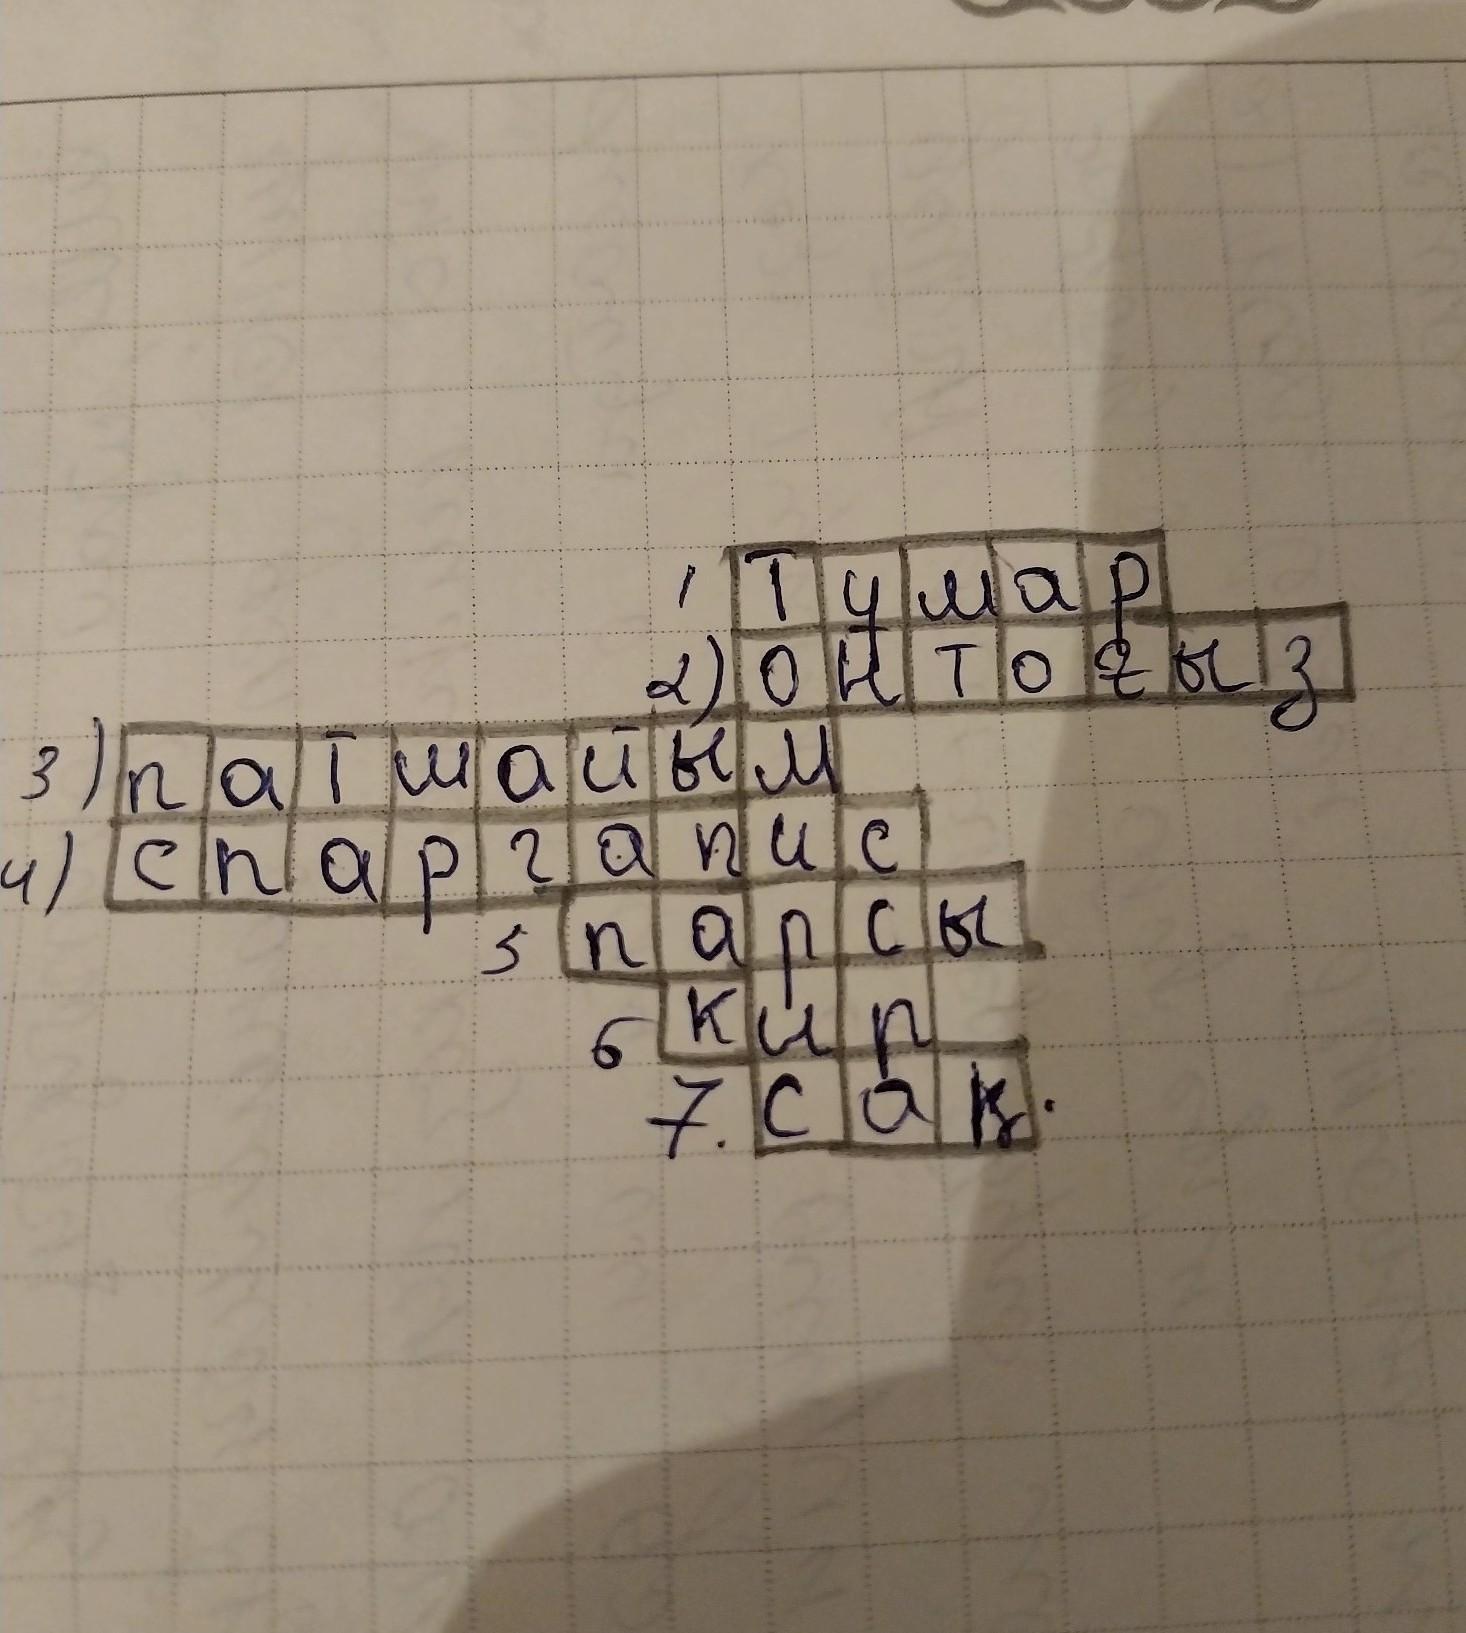 1 Тумар
2) он тоғыз
3) патшайым
4) спаргапис
5 парсы
6 кир
7. сақ.